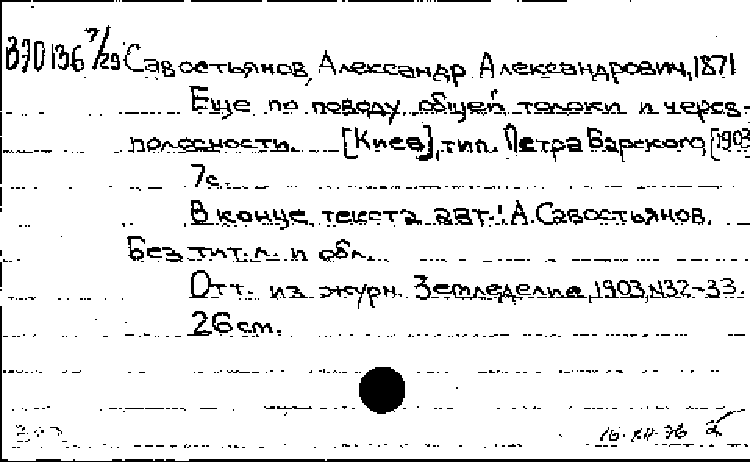 В90136 7/29 Савостьянов, Александр Александрович, 1871
Еще по поводу общей толоки и черес-
полосности. [Киев], тип. Петра Барского, [1903
7с.
В конце текста авт.: А. Савостьянов.
Без тит. л. и обл.
Отт. из журн. Земледелие, 1903, №32-33.
26 см.